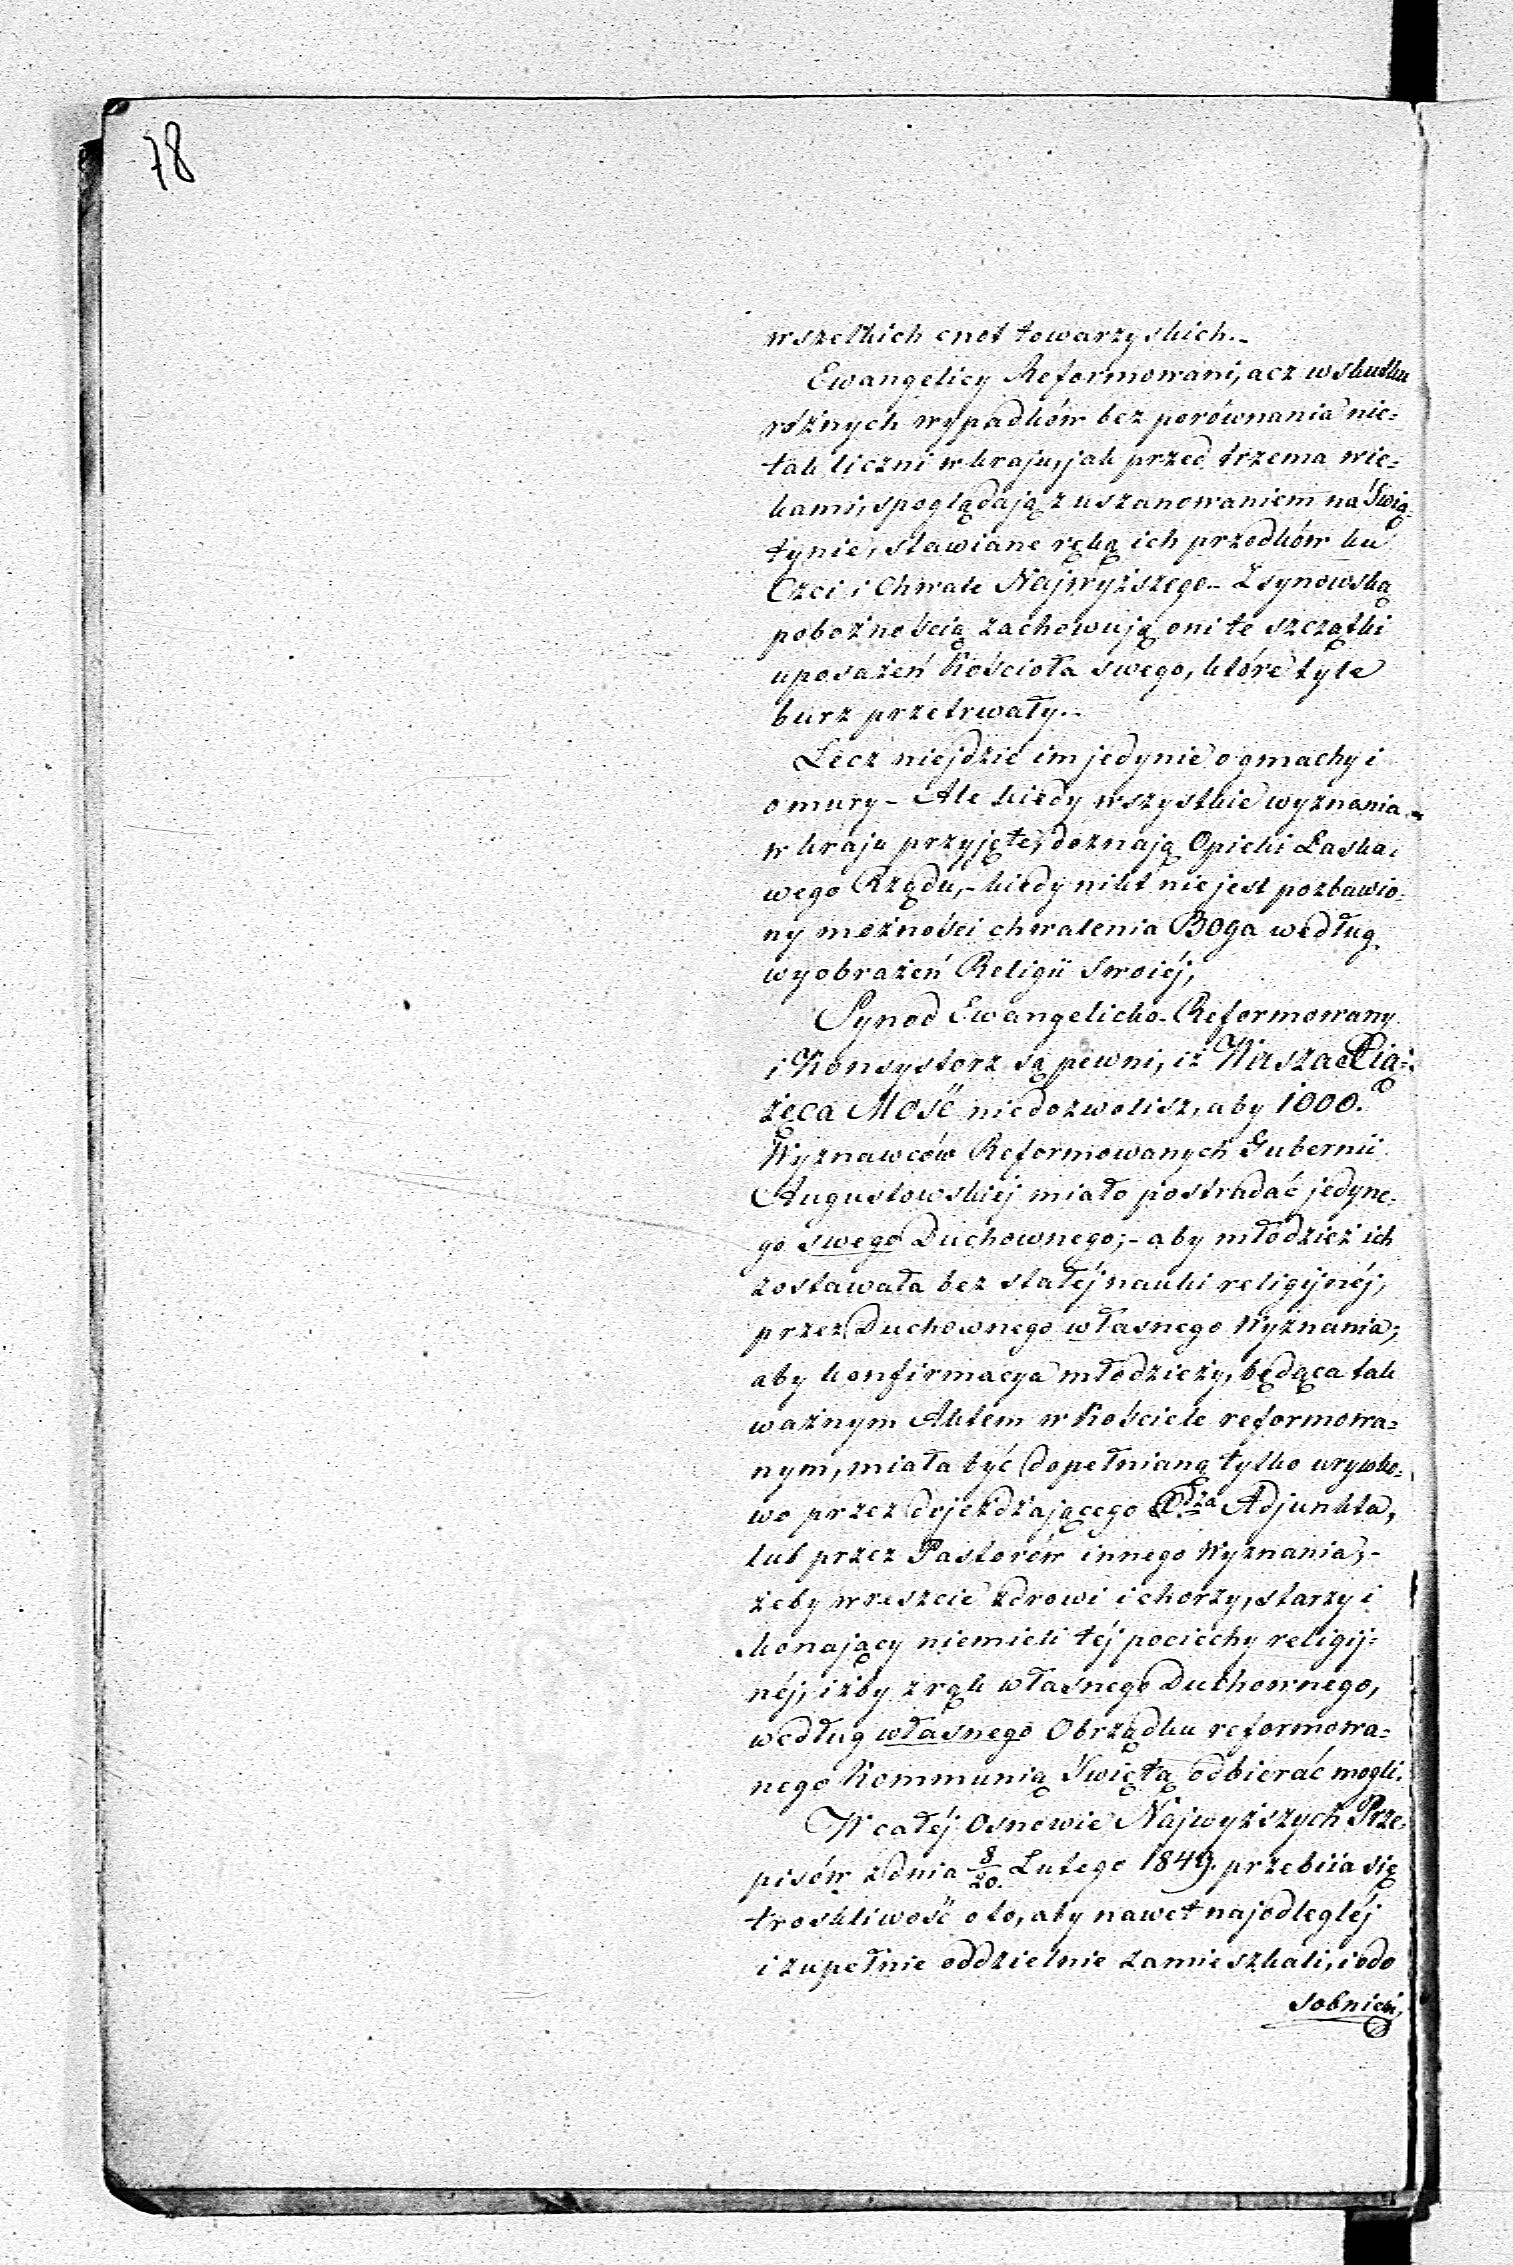 78
wszelkich cnot towarzyskich.-
Ewangelicy Reformowani, acz wskutku
róźnych wypadków bez porównania nie=
tak liczni w kraju, jak przed trzema wie=
kami, spoglądają z uszanowaniem na Świą=
tynie, stawiane ręką ich przodków ku
Czci i Chwale Najwyższego- Z synowską
pobożnością zachowują oni te szczątki
uposażeń Kościoła swego, które tyle
burz przetrwały.-
Lecz niejdzie im jedynie o gmachy i
o mury - Ale kiedy wszystkie wyznania
w kraju przyjęte, doznają Opieki Łaska=
wego Rządu,- kiedy nikt nie jest pozbawio=
ny możności chwalenia Boga według
wyobrażeń Religii swoiéj,
Synod Ewangelicko-Reformowany
i Konsystorz są pewni, iż Wasza Xią=
żęca Mość niedozwolisz, aby 1000.
Wyznawców Reformowanych Gubernii
Augustowskiéj miało postradać jedyne=
go swego Duchownego;- aby młódzież ich
zostawała bez stałéj nauki religijnéj,
przez Duchownego własnego Wyznania;
aby konfirmacya młodzieży, będąca tak
ważnym Aktem w Kościele reformowa=
nym, miała być dopełnianą tylko urywko=
wo przez dojeżdżającego Xdza Adjunkta,
lub przez Pastorów innego Wyznania;-
żeby wreszcie zdrowi i chorzy, starzy i
konający niemieli téj pociechy religij=
néj, iżby z rąk własnego Duchownego,
według własnego Obrządku reformowa=
nego Kommunią Świętą odbierać mogli.
W całéj Osnowie Najwyższych Prze=
pisów z dnia 8/20. Lutego 1849. przebiia się
troskliwość o to, aby nawet najodlegléj
i zupełnie oddzielnie zamieszkali, i odo
sobnieni,